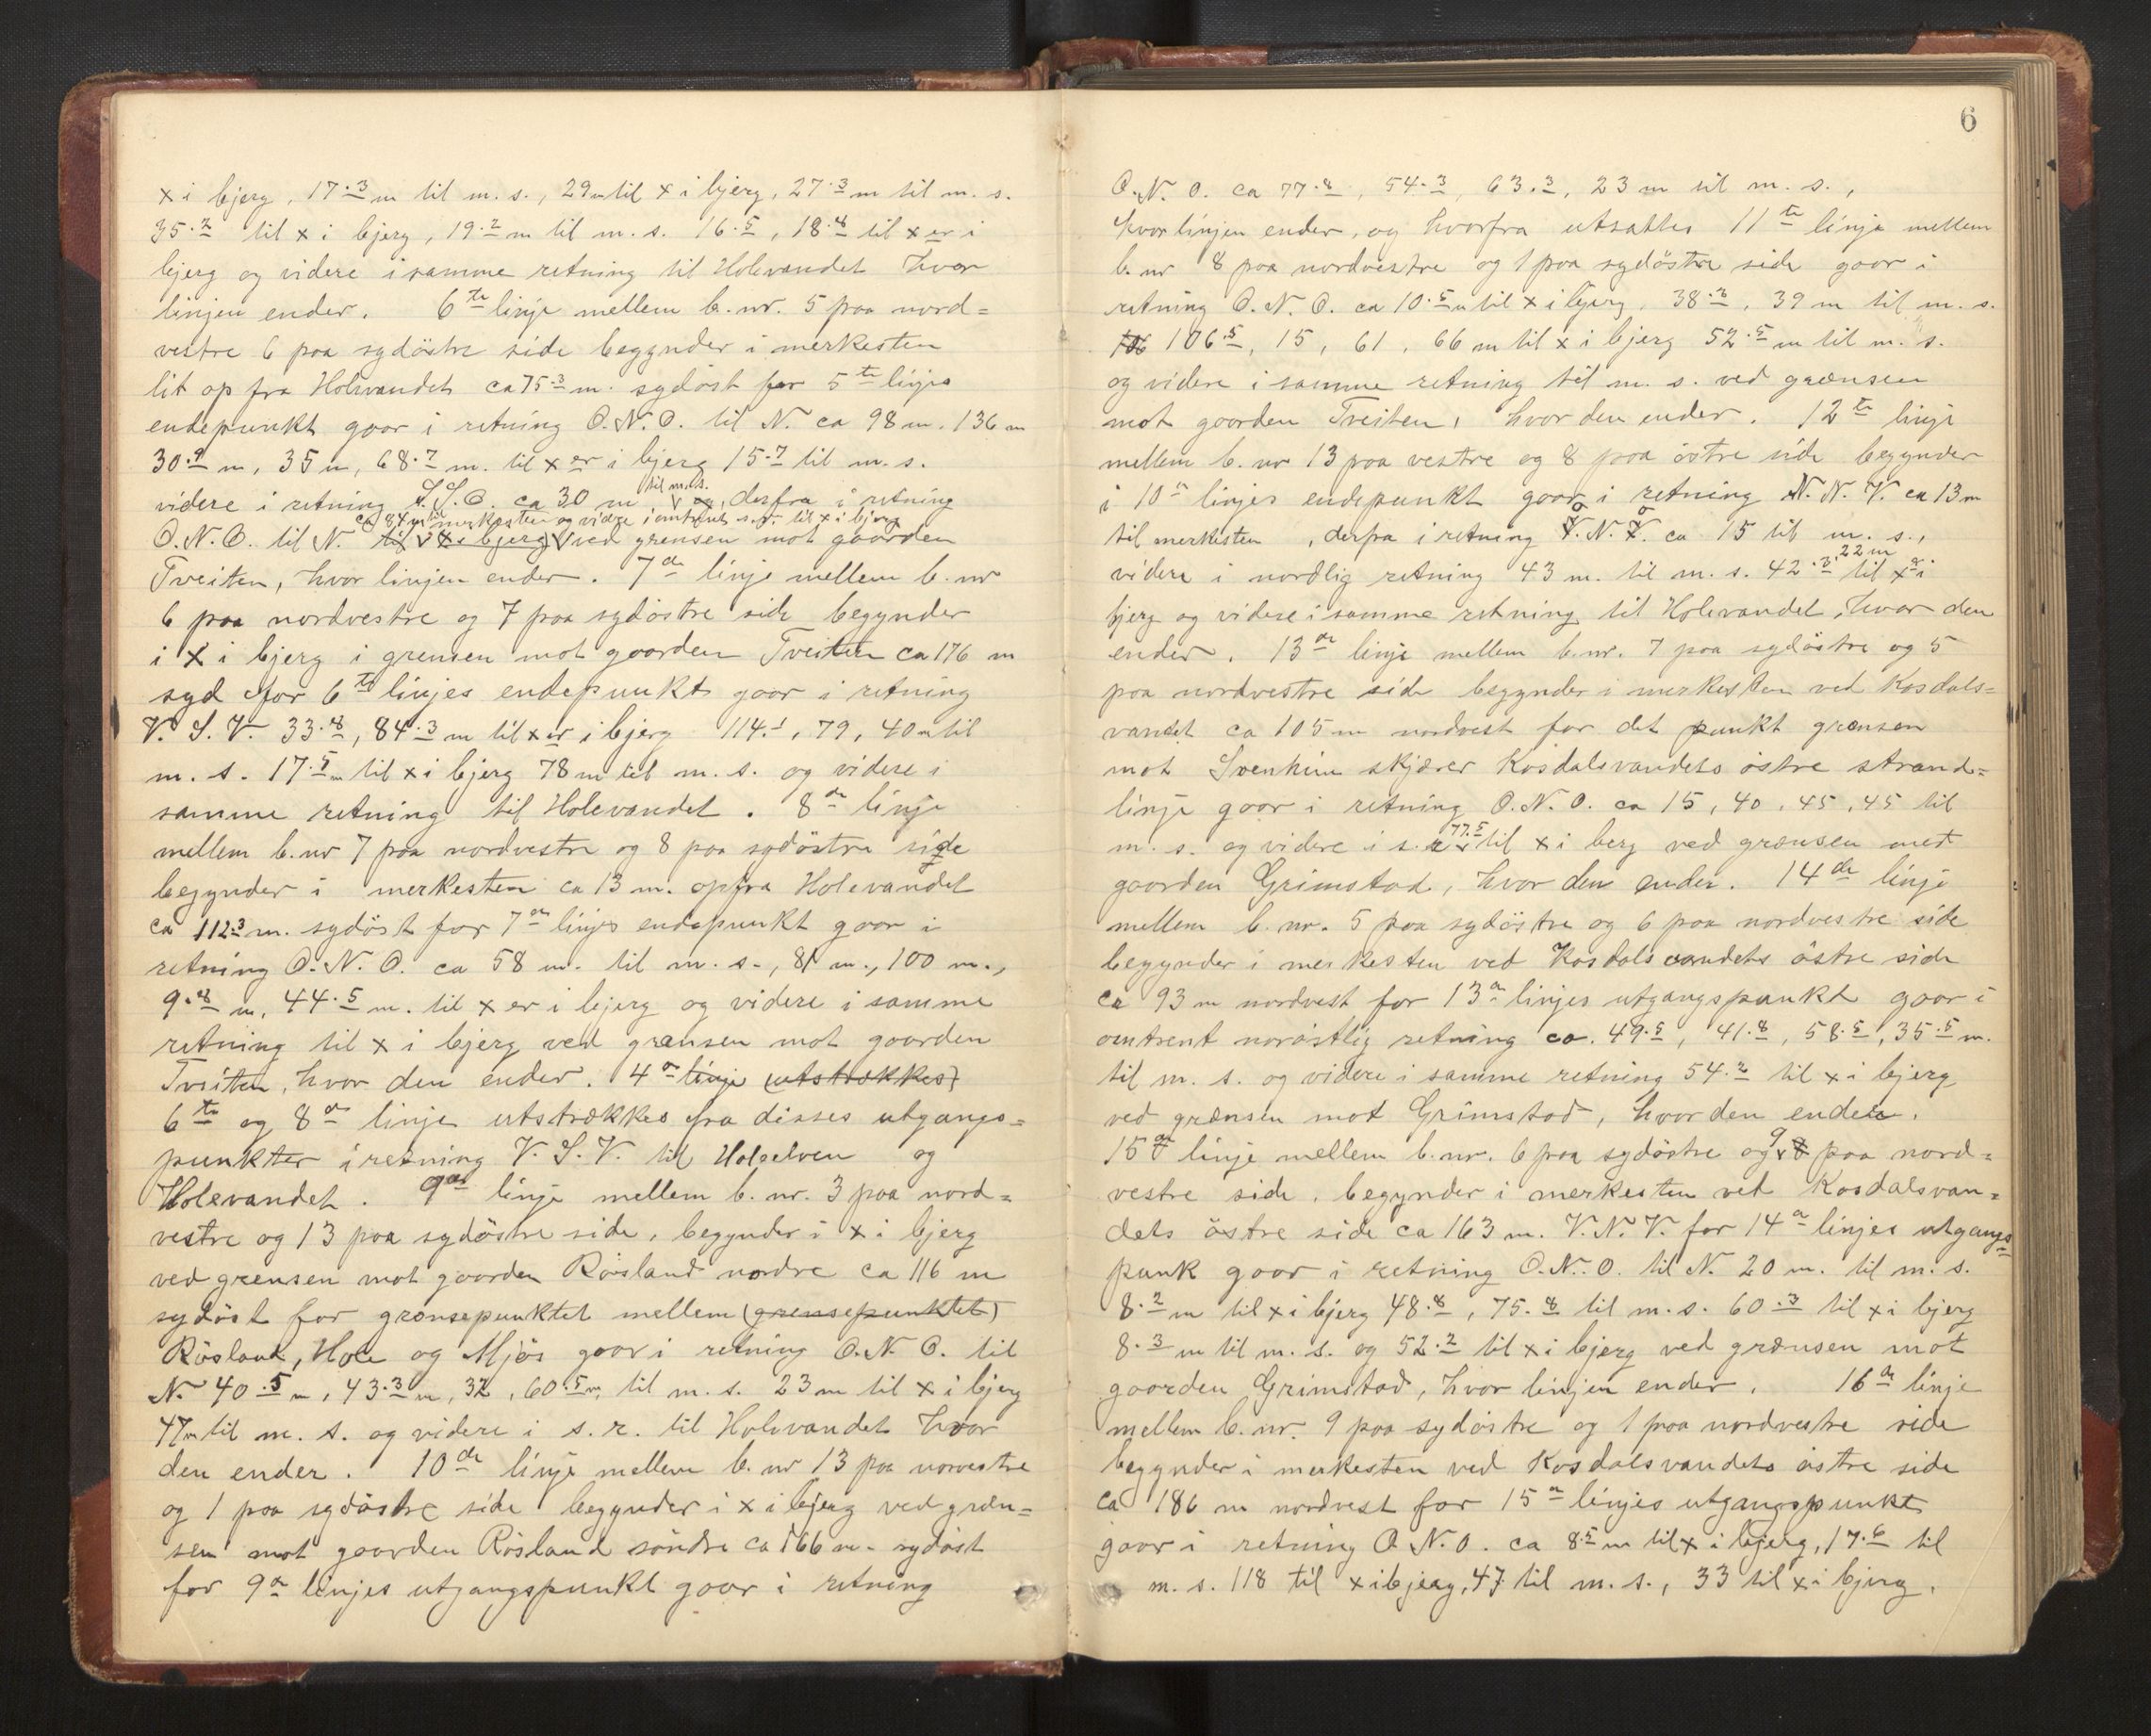 x i bjerg, 17.3 m til m. s., 29 m til x i bjerg, 27.3 m til m. s.
35.2 til x i bjerg, 19.2 m til m. s. 16.5, 18.8 til x er i
bjerg og videre i samme retning til Holevandet hvor
linjen ender. 6te linje mellem b. nr. 5 paa nord=
vestre 6 paa sydöstre side begynder i merkesten
lit op fra Holevandet ca 75.3 m. sydöst for 5te linjes
endepunkt gaar i retning O.N.O. til N. ca 98 m. 136 m
30.9 m, 35 m, 68.7 m. til x er i bjerg 15.7 til m. s.
videre i retning S.S.O. ca 30 m til m.s. og, derfra i retning
ca 84 m til merkesten og videre i omtrent s. r. til x i bjerg
O.N.O. til N. til x i bjerg ved grensen mot gaarden
Tveiten, hvor linjen ender. 7de linje mellem b. nr
6 paa nordvestre og 7 paa sydöstre side begynder
i x i bjerg i grensen mot gaarden Tveiten ca 176 m
syd for 6te linjes endepunkt gaar i retning
V. S. V. 33.8, 84.3 m til x er i bjerg 114.1, 79, 40 m til
m. s. 17.5 m til x i bjerg 78 m til m. s. og videre i
samme retning til Holevandet. 8de linje
mellem b. nr 7 paa nordvestre og 8 paa sydöstre side
begynder i merkesten ca 13 m. op fra Holevandet
ca 112.3 m. sydöst for 7de linjes endepunkt gaar i
retning O. N. O. ca 58 m. til m. s., 81 m., 100 m.,
9.8 m, 44.5 m. til x er i bjerg og videre i samme
retning til x i bjerg ved grænsen mot gaarden
Tveiten, hvor den ender. 4de linje (utstrækkes)
6te og 8de linje utstrækkes fra disses utgangs=
punkter i retning V. S. V. til Holeelven og
Holevandet. 9de linje mellem b. nr. 3 paa nord=
vestre og 13 paa sydöstre side, begynder i x i bjerg
ved grensen mot gaarden Rösland nordre ca 116 m
sydöst for grænsepunktet mellem (grensepunktet)
Rösland, Hole og Mjös gaar i retning O. N. O. til
N. 40.5 m, 43.3 m, 32, 60.5 m. til m. s. 23 m til x i bjerg
47 m til m. s. og videre i s. r. til Holevandet hvor
den ender. 10de linje mellem b. nr 13 paa norvestre
og 1 paa sydöstre side begynder i x i bjerg ved græn=
sen mot gaarden Rösland söndre ca 166 m. sydöst
for 9de linjes utgangspunkt gaar i retning
6
O. N. O. ca 77.8, 54.3, 63.3, 23 m til m. s.,
hvor linjen ender, og hvorfra utsattes 11te linje mellem
b. nr 8 paa nordvestre og 1 paa sydöstre side gaar i
retning O. N. O. ca 10.5 m til x i bjerg, 38.3, 39 m til m. s.
106 106.5, 15, 61, 66 m til x i bjerg 52.5 m til m. s.
og videre i samme retning til m. s. ved grænsen
mot gaarden Tveiten, hvor den ender. 12te linje
mellem b. nr 13 paa vestre og 8 paa östre side begynder
i 10de linjes endepunkt gaar i retning N. N. V. ca 13 m
til merkesten, derfra i retning O. N. O. ca 15 til m. s.,
videre i nordlig retning 43 m. til m. s. 42.3, 22 m til x er i
bjerg og videre i samme retning til Holevandet, hvor den
ender. 13de linje mellem b. nr. 7 paa sydöstre og 5
paa nordvestre side begynder i merkesten ved Kosdals=
vandet ca 105 m nordvest for det punkt grænsen
mot Svenheim skjærer Kosdalsvandets östre strand=
linje gaar i retning O. N. O. ca 15, 40, 45, 45 til
m. s. og videre i s. r. 77.5 til x i berg ved grænsen met
gaarden Grimstad, hvor den ender. 14de linje
mellem b. nr. 5 paa sydöstre og 6 paa nordvestre side
begynder i merkesten ved Kosdalsvandets östre side
ca 93 m nordvest for 13de linjes utgangspunkt gaar i
omtrent noröstlig retning ca. 49.5, 41.8, 58.5, 35.5 m.
til m. s. og videre i samme retning 54.2 til x i bjerg
ved grænsen mot Grimstad, hvor den ender.
15de linje mellem b. nr. 6 paa sydöstre og 9 paa nord=
vestre side, begynder i merkesten ved Kosdalsvan=
dets östre side ca 163 m. V. N. V. for 14de linjes utgangs=
punk gaar i retning O. N. O. til N. 20 m. til m. s.
8.2 m til x i bjerg 48.8, 75.8 til m. s. 60.3 til x i bjerg
8.3 m til m. s. og 52.2 til x i bjerg ved grænsen mot
gaarden Grimstad, hvor linjen ender. 16de linje
mellem b. nr. 9 paa sydöstre og 1 paa nordvestre side
begynder i merkesten ved Kosdalsvandets östre side
ca 186 m nordvest for 15de linjes utgangspunkt
gaar i retning O. N. O. ca 8.5 m til x i bjerg, 17.6 til
m. s. 118 til x i bjerg, 47 til m. s., 33 til x i bjerg,